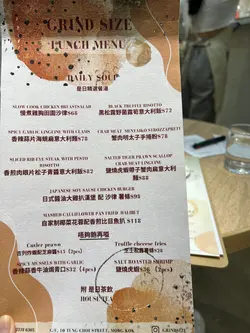 GRIND SIZE
LUNCH MENU
DAILY SOUP
是日精選餐湯
SLOW COOK CHICKEN BREAST SALAD
慢煮雞胸田園沙律$68
BLACK TRUFFLE RISOTTO
黑松露野菌意大利飯$72
SPICY GARLIC LINGUINE WITH CLAMS
香辣蒜片海蜆扁意大利麵$78
CRAB MEAT MENTAIKO STROZZAPRETI
蟹肉明太子手捲粉$78
SLICED RIB EYE STEAK WITH PESTO RISOTTO
香煎肉眼片松子青醬意大利飯$82
SALTED TIGER PRAWN SCALLOP
CRAB MEAT LINGUINE
鹽燒虎蝦帶子蟹肉意大利扁麵$88
JAPANESE SOY SAUSE CHICKEN BURGER
日式醬油大雞扒漢堡 配 沙律 薯條$93
MASHED CAULIFLOWER PAN FRIED HALIBUT
自家制椰菜花蓉配香煎比目魚扒 $118
唔夠飽再嗌
Cutler prawn
吉列炸蝦配芝麻醬$15 (2pcs)
Truffle cheese fries
芝士松露薯條$28
SPICY MUSSELS WITH GARLIC
香辣蒜香牛油焗青口$32 (4pcs)
SALT ROASTED SHRIMP
鹽燒虎蝦$26 (2pcs)
附 是日茶飲
HOUSE TEA
G/F, 1B TUNG CHOI STREET, MONG KOK